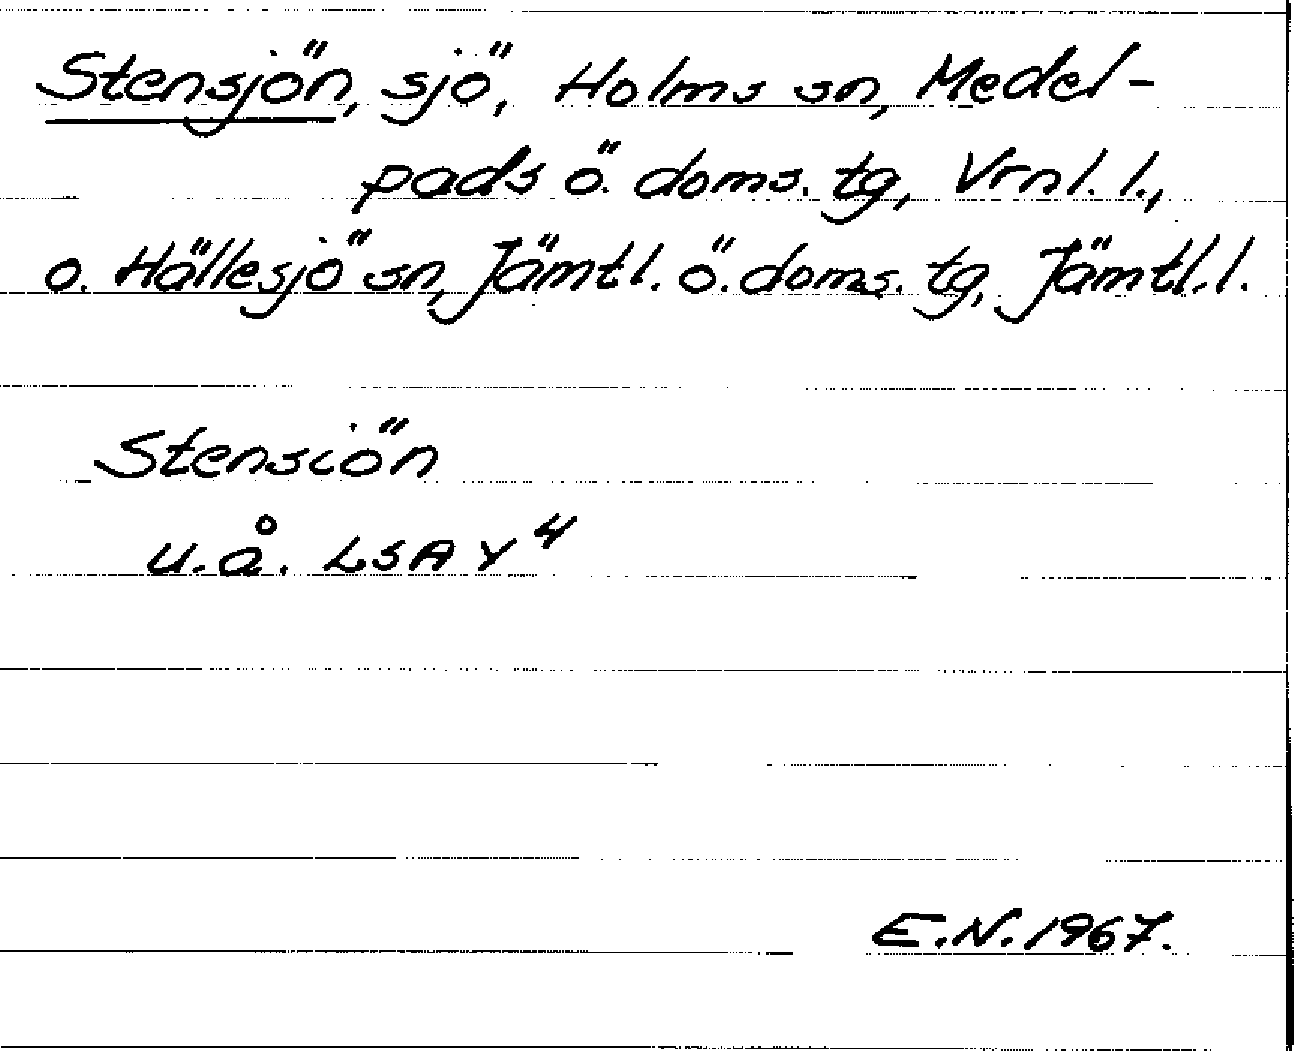 Stensjön, sjö, Holms sn, Medel-
pads ö. doms. tg, Vrnl. l.,
o. Hällesjö sn, Jämtl. ö. doms. tg, Jämtl. l.
Stensiön
u.å. LSA Y 4
E.N. 1967.